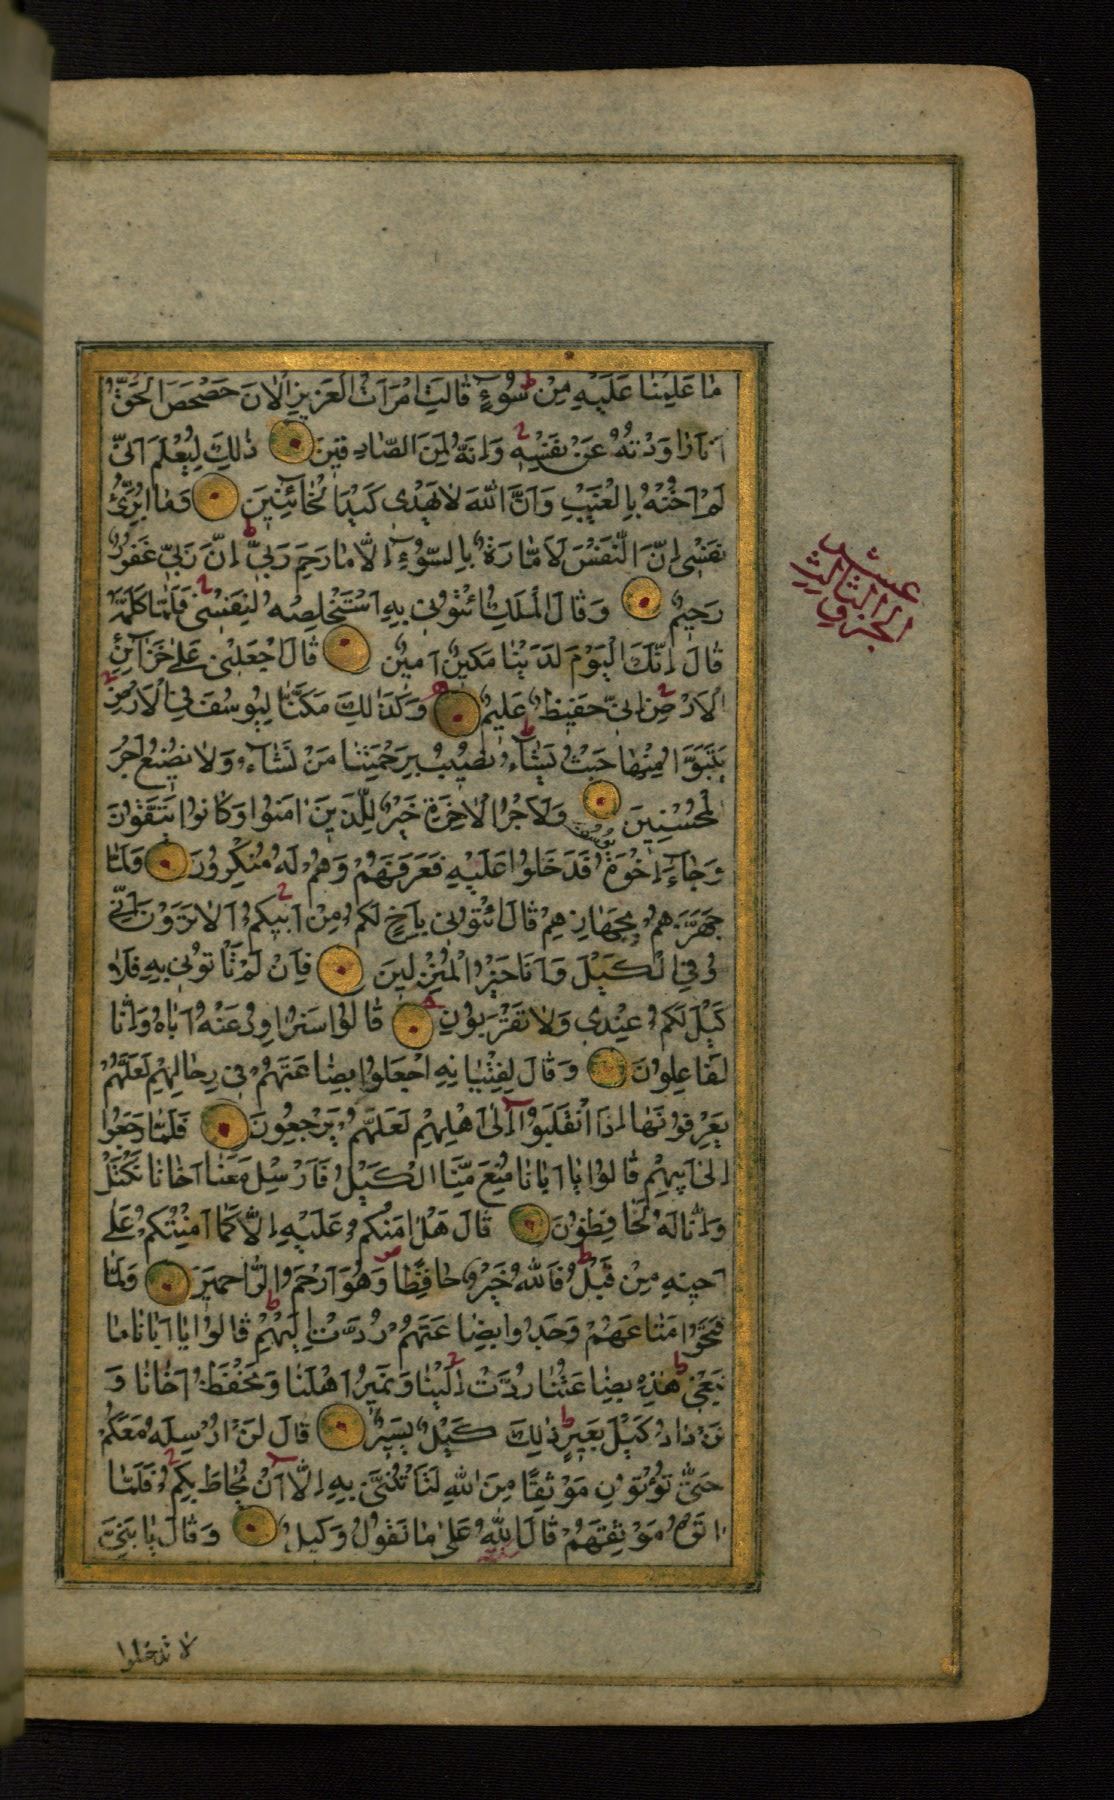 مَا عَلِمْنَا عَلَيْهِ مِنْ سُوءٍ قَالَتِ امْرَاَتُ الْعَزِيزِ الْاٰنَ حَصْحَصَ الْحَقُّ
اَنَا رَاوَدْتُهُ عَنْ نَفْسِهِ وَاِنَّهُ لَمِنَ الصَّادِقِينَ ذٰلِكَ لِيَعْلَمَ اَنّٖى
لَمْ اَخُنْهُ بِالْغَيْبِ وَاَنَّ اللّٰهَ لَا يَهْدِى كَيْدَ الْخَائِنِينَ وَمَا اُبَرِّئُ
نَفْسِى اِنَّ النَّفْسَ لَاَمَّارَةٌ بِالسُّوءِ اِلَّا مَا رَحِمَ رَبِّى اِنَّ رَبِّى غَفُورٌ
رَحِيمٌ وَقَالَ الْمَلِكُ ائْتُونِى بِهِ اَسْتَخْلِصْهُ لِنَفْسِى فَلَمَّا كَلَّمَهُ
قَالَ اِنَّكَ الْيَوْمَ لَدَيْنَا مَكِينٌ اَمِينٌ قَالَ اجْعَلْنِى عَلٰى خَزَائِنِ
الْاَرْضِ اِنّٖى حَفِيظٌ عَلِيمٌ وَكَذٰلِكَ مَكَّنَّا لِيُوسُفَ فِى الْاَرْضِ
يَتَبَوَّاُ مِنْهَا حَيْثُ يَشَاءُ نُصِيبُ بِرَحْمَتِنَا مَنْ نَشَاءُ وَلَا نُضِيعُ اَجْرَ
الْمُحْسِنِينَ وَلَاَجْرُ الْاٰخِرَةِ خَيْرٌ لِلَّذِينَ اٰمَنُوا وَكَانُوا يَتَّقُونَ
وَجَاءَ اِخْوَةُ يوسف فَدَخَلُوا عَلَيْهِ فَعَرَفَهُمْ وَهُمْ لَهُ مُنْكِرُونَ وَلَمَّا
جَهَّزَهُمْ بِجَهَازِهِمْ قَالَ ائْتُونِى بِاَخٍ لَكُمْ مِنْ اَبِيكُمْ اَلَا تَرَوْنَ اَنّٖى
اُوفِى الْكَيْلَ وَاَنَا خَيْرُ الْمُنْزِلِينَ فَاِنْ لَمْ تَاْتُونِى بِهِ فَلَا
كَيْلَ لَكُمْ عِنْدِى وَلَا تَقْرَبُونِ قَالُوا سَنُرَاوِدُ عَنْهُ اَبَاهُ وَاِنَّا
لَفَاعِلُونَ وَقَالَ لِفِتْيَانِهِ اجْعَلُوا بِضَاعَتَهُمْ فِى رِحَالِهِمْ لَعَلَّهُمْ
يَعْرِفُونَهَا اِذَا انْقَلَبُوا اِلٰى اَهْلِهِمْ لَعَلَّهُمْ يَرْجِعُونَ فَلَمَّا رَجَعُوا
اِلٰى اَبِيهِمْ قَالُوا يَا اَبَانَا مُنِعَ مِنَّا الْكَيْلُ فَاَرْسِلْ مَعَنَا اَخَانَا نَكْتَلْ
وَاِنَّا لَهُ لَحَافِظُونَ قَالَ هَلْ اٰمَنُكُمْ عَلَيْهِ اِلَّا كَمَا اَمِنْتُكُمْ عَلٰى
اَخِيهِ مِنْ قَبْلُ فَاللّٰهُ خَيْرٌ حَافِظًا وَهُوَ اَرْحَمُ الرَّاحِمِينَ وَلَمَّا
فَتَحُوا مَتَاعَهُمْ وَجَدُوا بِضَاعَتَهُمْ رُدَّتْ اِلَيْهِمْ قَالُوا يَا اَبَانَا مَا
نَبْغِى هٰذِهِ بِضَاعَتُنَا رُدَّتْ اِلَيْنَا وَنَمِيرُ اَهْلَنَا وَنَحْفَظُ اَخَانَا وَ
نَزْدَادُ كَيْلَ بَعِيرٍ ذٰلِكَ كَيْلٌ يَسِيرٌ قَالَ لَنْ اُرْسِلَهُ مَعَكُمْ
حَتّٰى تُؤْتُونِ مَوْثِقًا مِنَ اللّٰهِ لَتَاْتُنَّنِى بِهِ اِلَّا اَنْ يُحَاطَ بِكُمْ فَلَمَّا
اٰتَوْهُ مَوْثِقَهُمْ قَالَ اللّٰهُ عَلٰى مَا نَقُولُ وَكِيلٌ وَقَالَ يَا بَنِىَّ
عشر
الجزؤ الثالث
لا تدخلوا